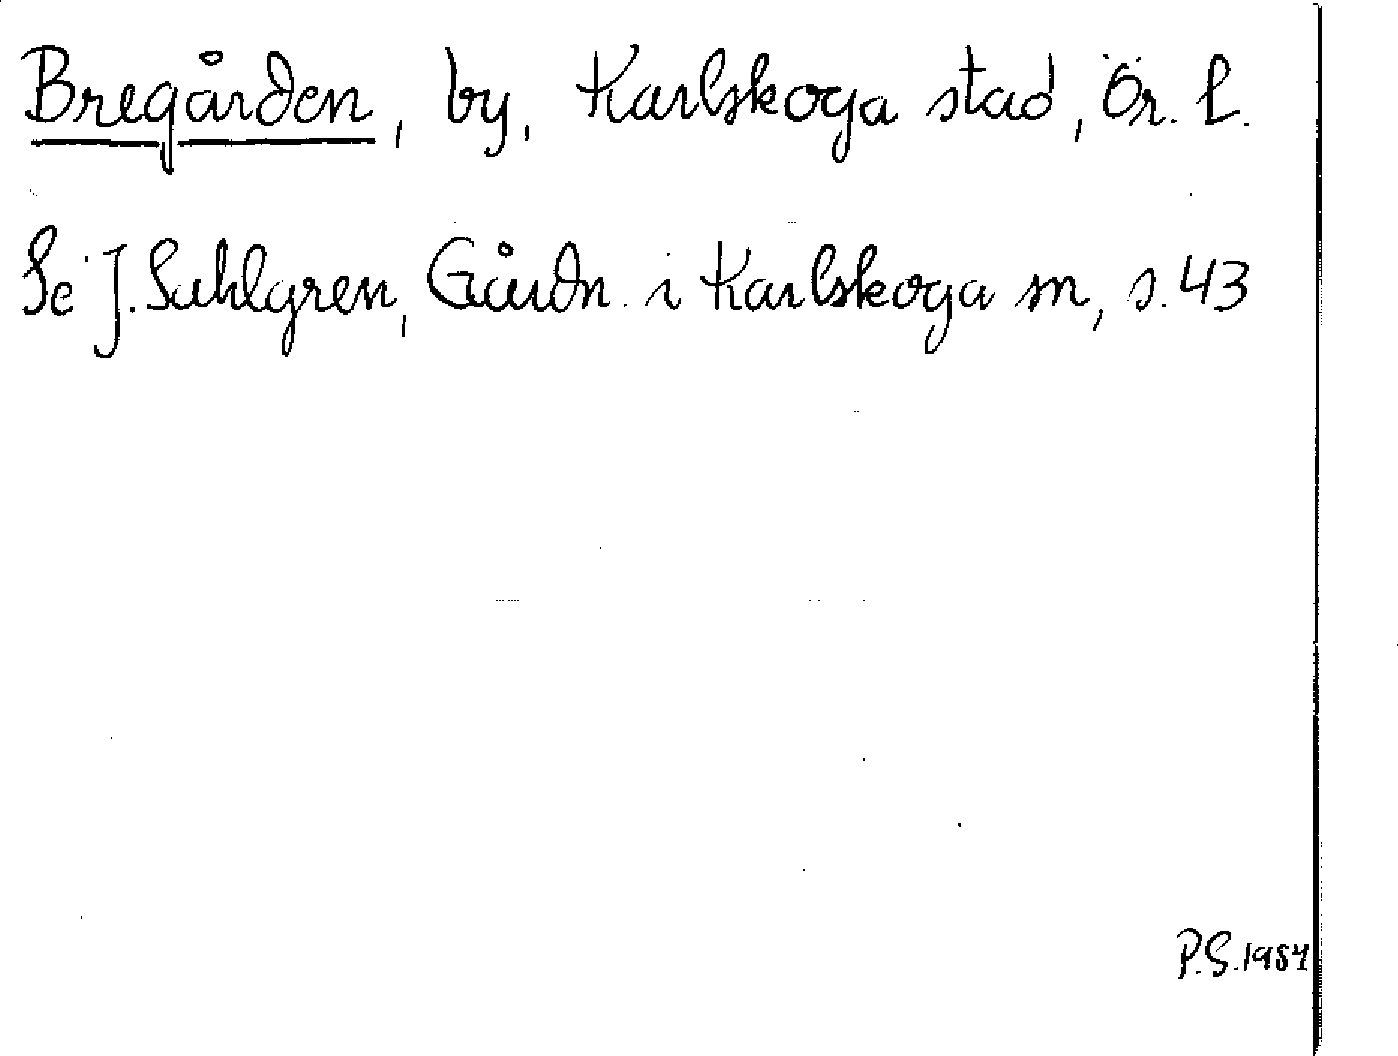 Bregården, by, Karlskoga stad, Ör. L.
Se J. Sahlgren, Gårdn. i Karlskoga sn, s. 43
P.S. 1984